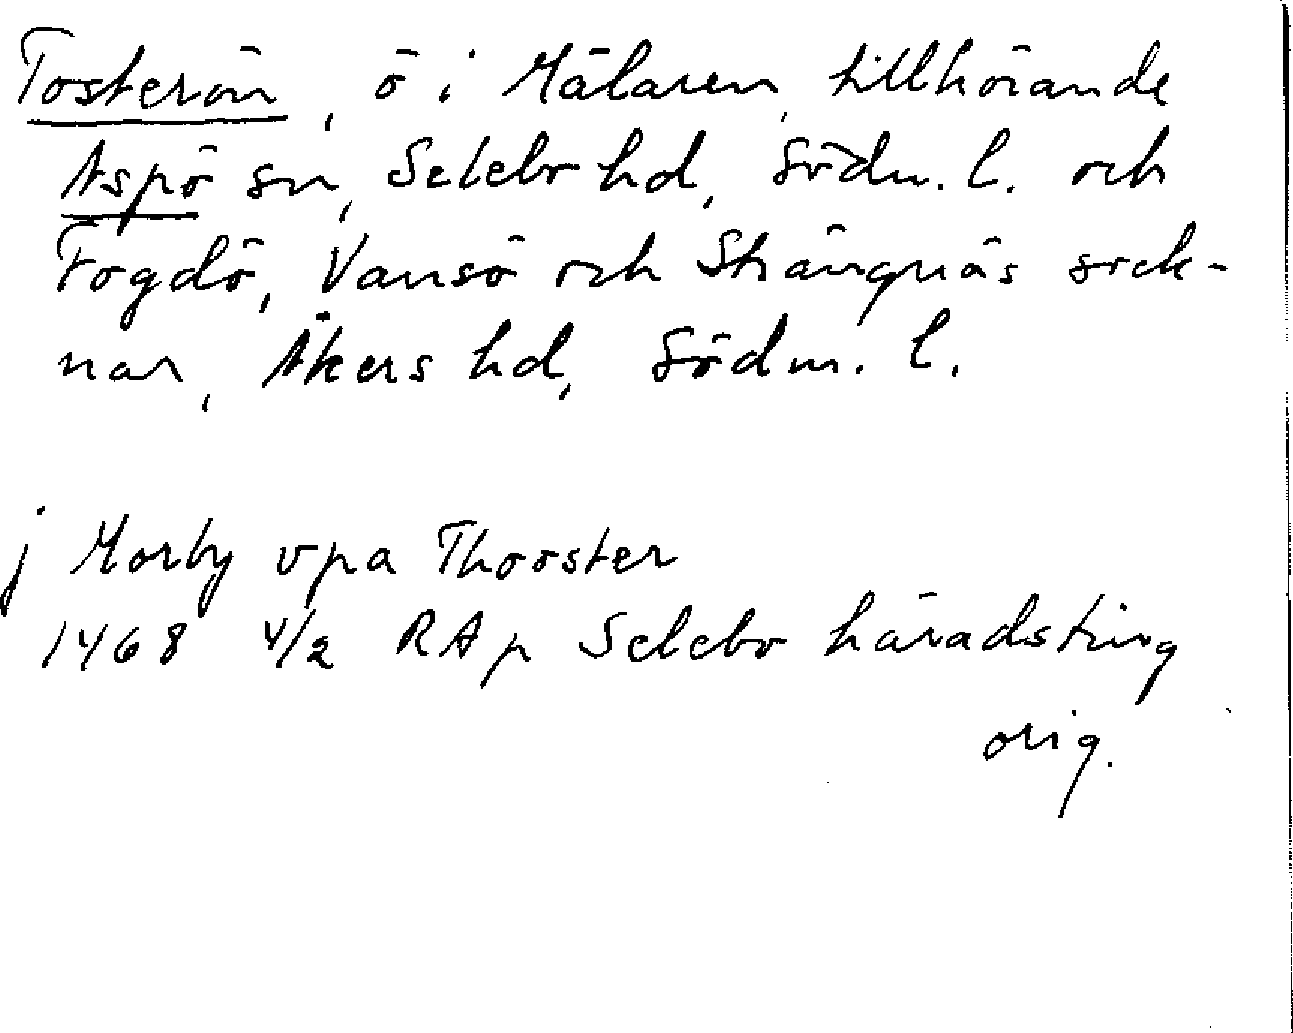 Tosterön, ö i Mälaren, tillhörande
Aspö sn, Selebo hd, Södm. l. och
Fogdö, Vansö och Strängnäs sock-
nar, Åkers hd, Södm. l.
j Morby vpa Thorster
1468 4/2 RAp Selebo häradsting
orig.